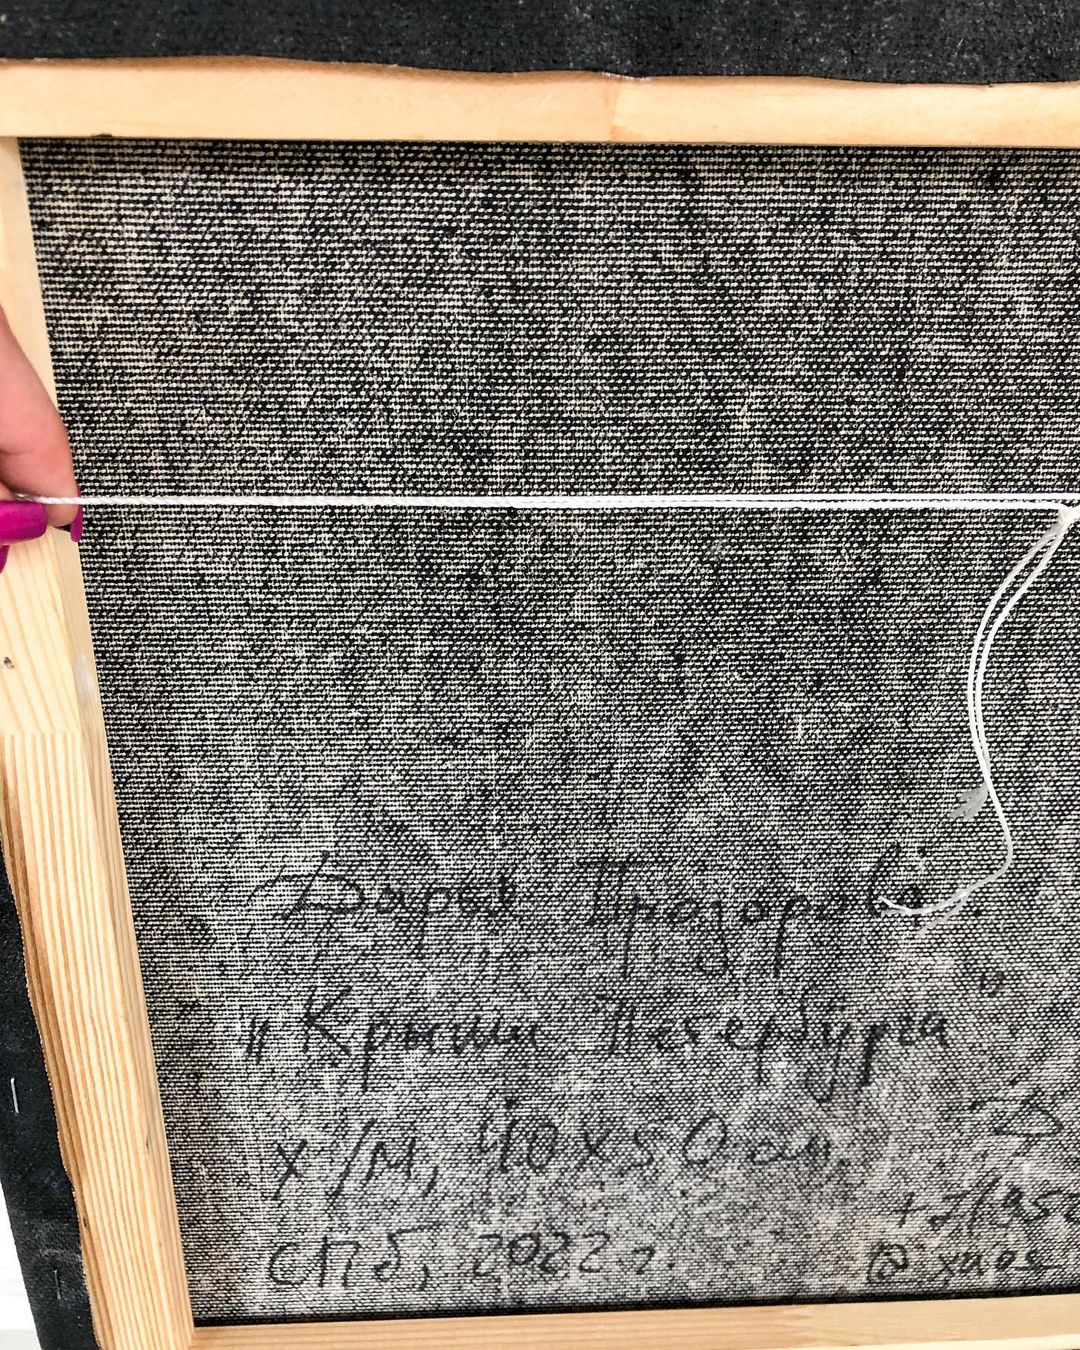 Дарья Прозорова
„Крыши Петербурга"
х/м, 40х50 см,
СПб, 2022 г.
+7/952
@xaos